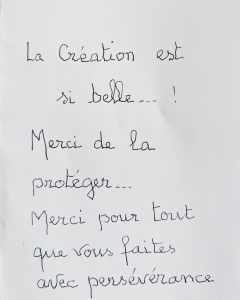 La Création est
si belle... !
Merci de la
protéger...
Merci pour tout
que vous faites
avec persévérance